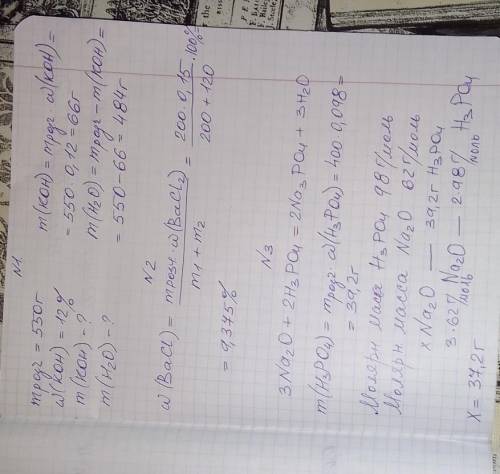 N1
mрозг = 550г
ω(KOH) = 12%
m(KOH) - ?
m(H2O) - ?
m(KOH) = mрозг ω(KOH) =
= 550 · 0,12 = 66г
m(H2O) = mрозг - m(KOH) =
= 550 - 66 = 484г
N2
ω(BaCl) = mрозч · ω(BaCl2) / m1 + m2 = 200 · 0,15 / 200 + 120 · 100% =
= 9,375%
N3
3Na2O + 2H3PO4 = 2Na3PO4 + 3H2O
m(H3PO4) = mрозг ω(H3PO4) = 400 0,098 =
= 39,2г
Молярн маса H3PO4 98 г/моль
Молярн масса Na2O 62 г/моль
xNa2O — 39,2г H3PO4
3·62 г/моль Na2O — 2·98 г/моль H3PO4
x = 37,2г